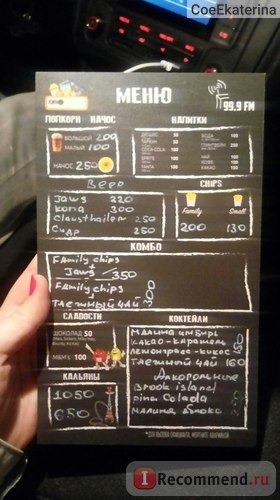 CoeEkaterina
МЕНЮ
99.9 FM
ПОПКОРН НАЧОС
НАПИТКИ
БОЛЬШОЙ 200
МАЛЫЙ 100
НАЧОС 250
COCA-COLA 100
SPRITE 100
FANTA 100
ВОДА 100
ЧАЙ 100
КОФЕ 100
КАКАО 100
Beer
Jaws 320
Kona 300
Clausthaller 250
Сидр 250
CHIPS
Family Small
200 130
КОМБО
Family chips
+
Jaws 350
Family chips
+
Таежный чай 300
СЛАДОСТИ
ШОКОЛАД 50
M&M'S 100
КАЛЬЯНЫ
1050
650
КОКТЕЙЛИ
Малина имбирь
Какао-карамель
Лемонграсс-кокос
Таежный чай 160
Алкогольные
Brook island
Pina Colada
Малина яблоко
I Recommend.ru